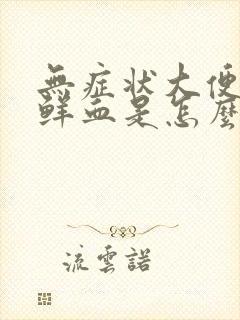 無症狀大便
鮮血是怎麼
流雲諾